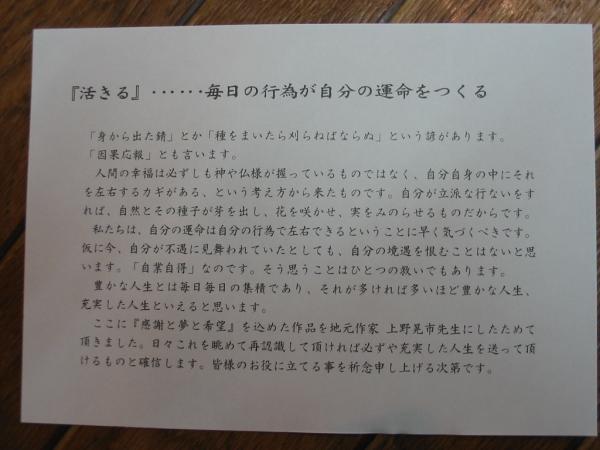 『活きる』‥‥‥毎日の行為が自分の運命をつくる
「身から出た錆」とか「種をまいたら刈らねばならぬ」という諺があります。
「因果応報」とも言います。
人間の幸福は必ずしも神や仏様が握っているものではなく、自分自身の中にそれ
を左右するカギがある、という考え方から来たものです。自分が立派な行ないをす
れば、自然とその種子が芽を出し、花を咲かせ、実をみのらせるものだからです。
私たちは、自分の運命は自分の行為で左右できるということに早く気づくべきです。
仮に今、自分が不遇に見舞われていたとしても、自分の境遇を恨むことはないと思
います。「自業自得」なのです。そう思うことはひとつの救いでもあります。
豊かな人生とは毎日毎日の集積であり、それが多ければ多いほど豊かな人生、
充実した人生といえると思います。
ここに『感謝と夢と希望』を込めた作品を地元作家 上野晃市先生にしたためて
頂きました。日々これを眺めて再認識して頂ければ必ずや充実した人生を送って頂
けるものと確信します。皆様のお役に立てる事を祈念申し上げる次第です。